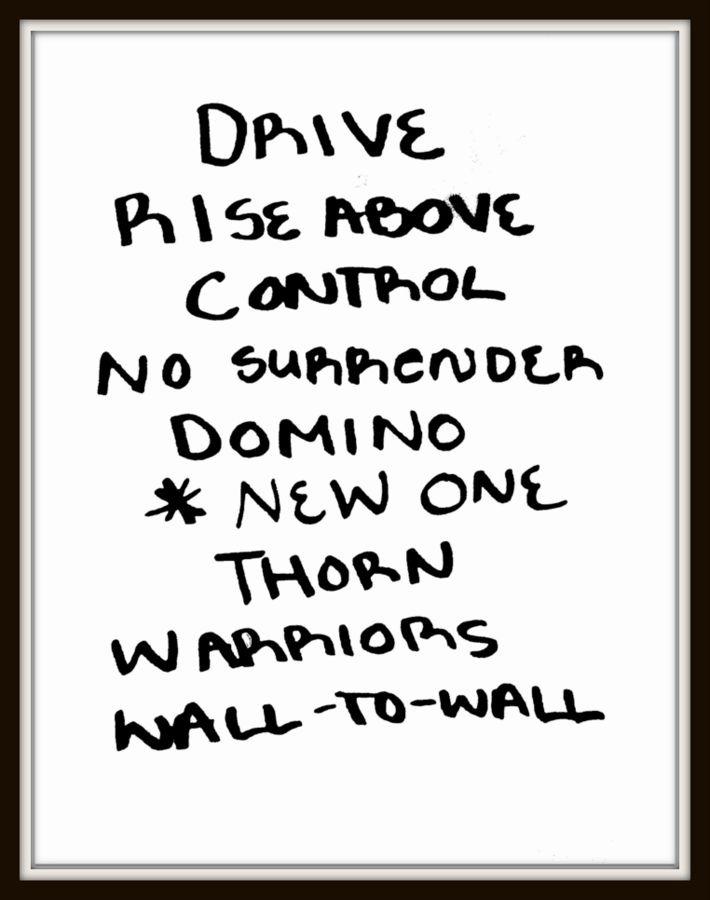 DRIVE
RISE ABOVE
CONTROL
NO SURRENDER
DOMINO
* NEW ONE
THORN
WARRIORS
WALL-TO-WALL